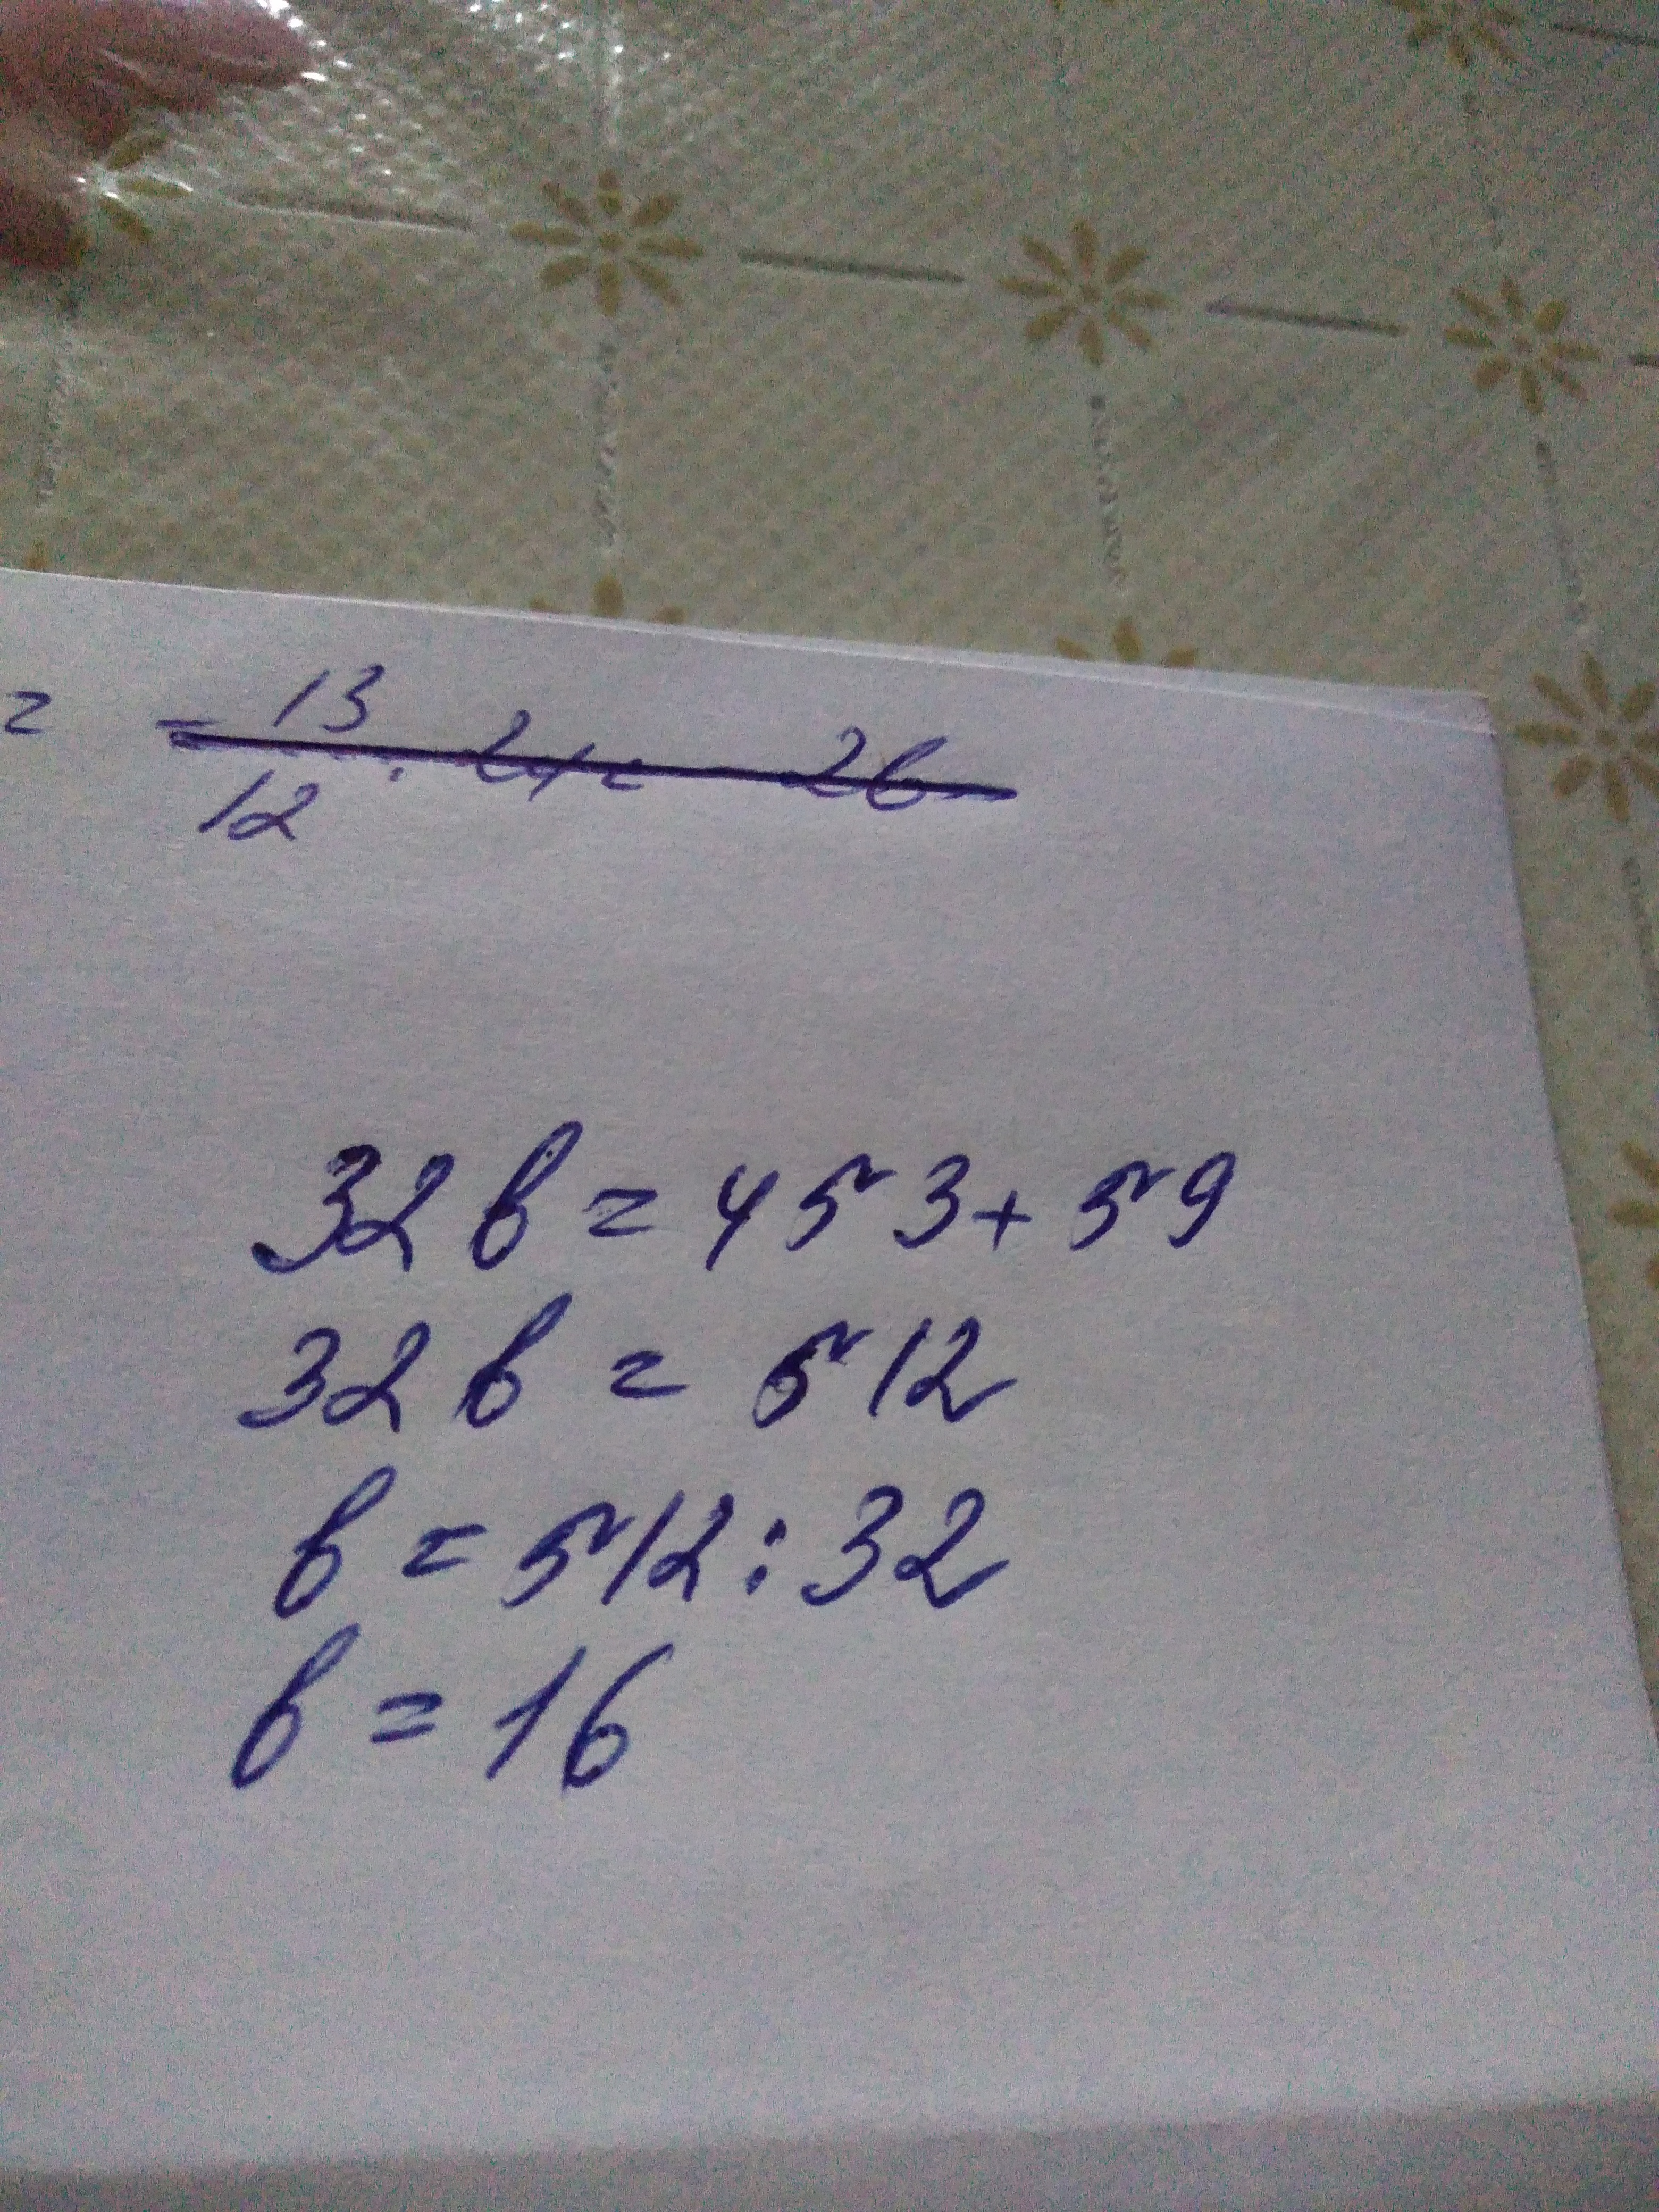 = = 13/12 · 24 = 26
32в = 453 + 59
32в = 512
в = 512 : 32
в = 16